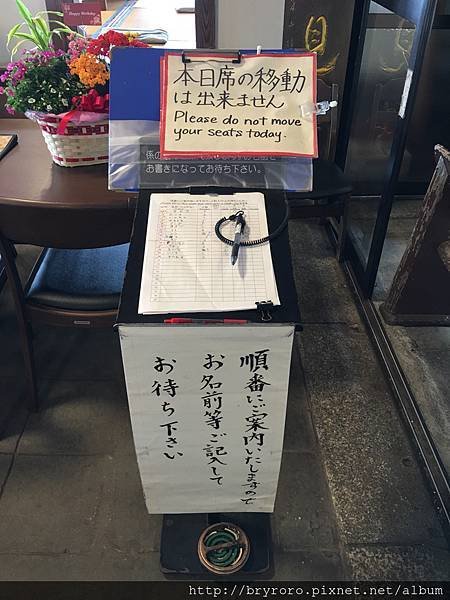 本日席の移動
は出来ません
Please do not move
your seats today.
お書きになってお待ち下さい。
順番にご案内いたしますので
お名前等ご記入して
お待ち下さい
http://bryroro.pixnet.net/album